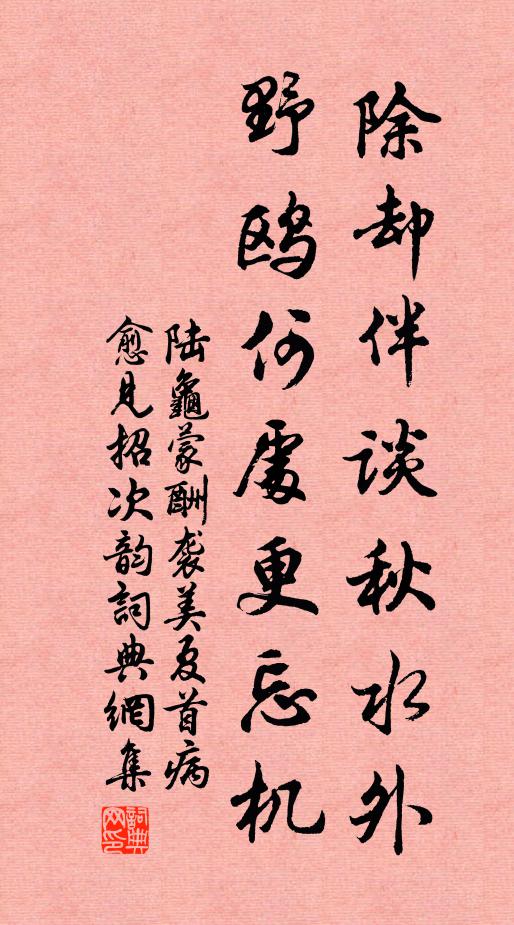 除却伴談秋水外
野鸥何處更忘机
陆龜蒙酬袭美夏首病
愈見招次韵詞典網集
詞典网印